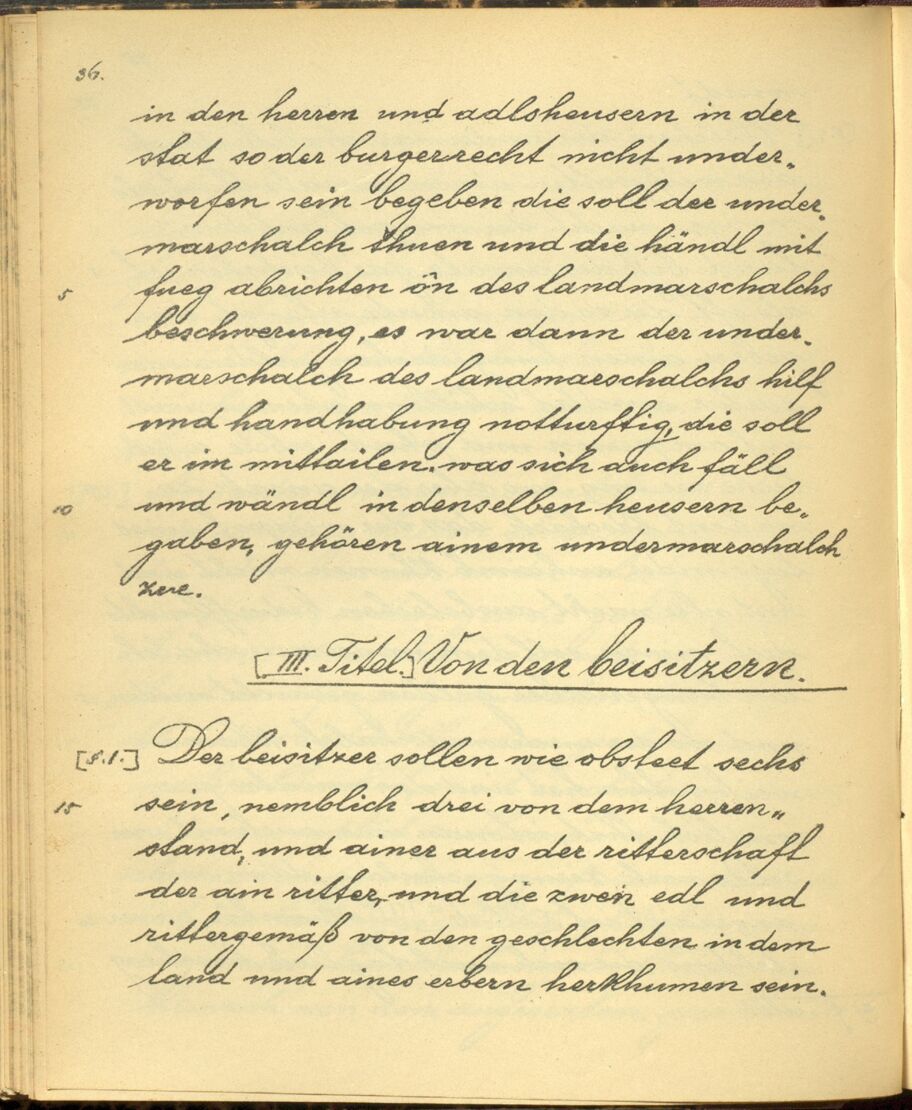 36.
in den herren und adlsheusern in der
stat so der burgerrecht nicht under„
worfen sein begeben die soll der under„
marschalch thuen und die händl mit
5 fueg abrichten ôn des landmarschalchs
beschwerung, es war dann der under„
marschalch des landmarschalchs hilf
und handhabung notturftig, die soll
er im mittailen. was sich auch fäll
10 und wändl in denselben heusern be„
gaben, gehören ainem undermarschalch
zue.
[III. Titel.] Von den beisitzern.
[§.1.] Der beisitzer sollen wie obsteet sechs
15 sein, nemblich drei von dem herren„
stand, und ainer aus der ritterschaft
der ain ritter, und die zwen edl und
rittergemäß von den geschlechten in dem
land und aines erbern herkhumen sein.